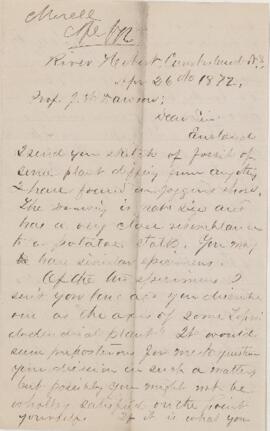 Morell
Ap /72
River Hebert, Cumberland N.S.
Apr 26th 1872.
Prof. J. W. Dawson;
Dear Sir
Enclosed
I send you sketch of fossil of
some plant differing from any other
I have found on Joggins shore.
The drawing is nat. size and
has a very close resemblance
to a potatoe stalk. You may
have similar specimens.
Of the two specimens I
sent you long ago you describe
one as the axis of some Lepi
dodendroid plant. It would
seem preposterous for me to question
your decision in such a matter
but possibly you might not be
wholly satisfied on the point
yourself. If it is what you